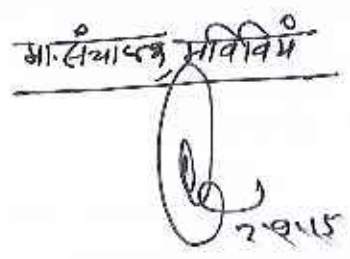 मा. संचालक, मविविमं
२.९.१५